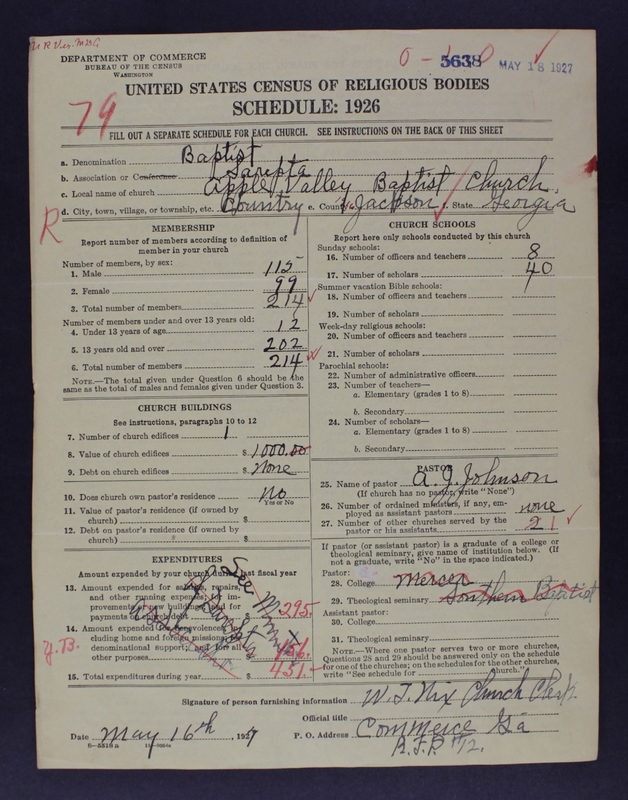 DEPARTMENT OF COMMERCE
BUREAU OF THE CENSUS
WASHINGTON
5638 MAY 18 1927
UNITED STATES CENSUS OF RELIGIOUS BODIES
SCHEDULE: 1926
79
FILL OUT A SEPARATE SCHEDULE FOR EACH CHURCH. SEE INSTRUCTIONS ON THE BACK OF THIS SHEET
a. Denomination Baptist
b. Association or Conference Sarepta
c. Local name of church Apple Valley Baptist Church
d. City, town, village, or township, etc. Country e. County Jackson f. State Georgia
R
MEMBERSHIP
Report number of members according to definition of
member in your church
Number of members, by sex:
1. Male 115
2. Female 99
3. Total number of members 214
Number of members under and over 13 years old:
4. Under 13 years of age 12
5. 13 years old and over 202
6. Total number of members 214
NOTE.—The total given under Question 6 should be the
same as the total of males and females given under Question 3.
CHURCH BUILDINGS
See instructions, paragraphs 10 to 12
7. Number of church edifices 1
8. Value of church edifices $ 1000.00
9. Debt on church edifices $ None
10. Does church own pastor's residence No
Yes or No
11. Value of pastor's residence (if owned by
church) $
12. Debt on pastor's residence (if owned by
church) $
EXPENDITURES
Amount expended by your church during last fiscal year
13. Amount expended for salaries, repairs,
and other running expenses; for im-
provements or new buildings; and for
payments on debt 295.
14. Amount expended for benevolences, in-
cluding home and foreign missions,
denominational support; and for all
other purposes 156.
15. Total expenditures during year $ 451.-
See Minutes
Y.B.
CHURCH SCHOOLS
Report here only schools conducted by this church
Sunday schools:
16. Number of officers and teachers 8
17. Number of scholars 40
Summer vacation Bible schools:
18. Number of officers and teachers
19. Number of scholars
Week-day religious schools:
20. Number of officers and teachers
21. Number of scholars
Parochial schools:
22. Number of administrative officers
23. Number of teachers—
a. Elementary (grades 1 to 8)
b. Secondary
24. Number of scholars—
a. Elementary (grades 1 to 8)
b. Secondary
PASTOR
25. Name of pastor A. J. Johnson
(If church has no pastor, write "None")
26. Number of ordained ministers, if any, em-
ployed as assistant pastors none
27. Number of other churches served by the
pastor or his assistants 21
If pastor (or assistant pastor) is a graduate of a college or
theological seminary, give name of institution below. (If
not a graduate, write "No" in the space indicated.)
Pastor:
28. College Mercer
29. Theological seminary Southern Baptist
Assistant pastor:
30. College
31. Theological seminary
NOTE.—Where one pastor serves two or more churches,
Questions 28 and 29 should be answered only on the schedule
for one of the churches; on the schedules for the other churches,
write "See schedule for church."
Signature of person furnishing information W. T. Nix Church Clerk
Official title
Date May 16th, 1927 P. O. Address Commerce Ga
R.F.D. #12.